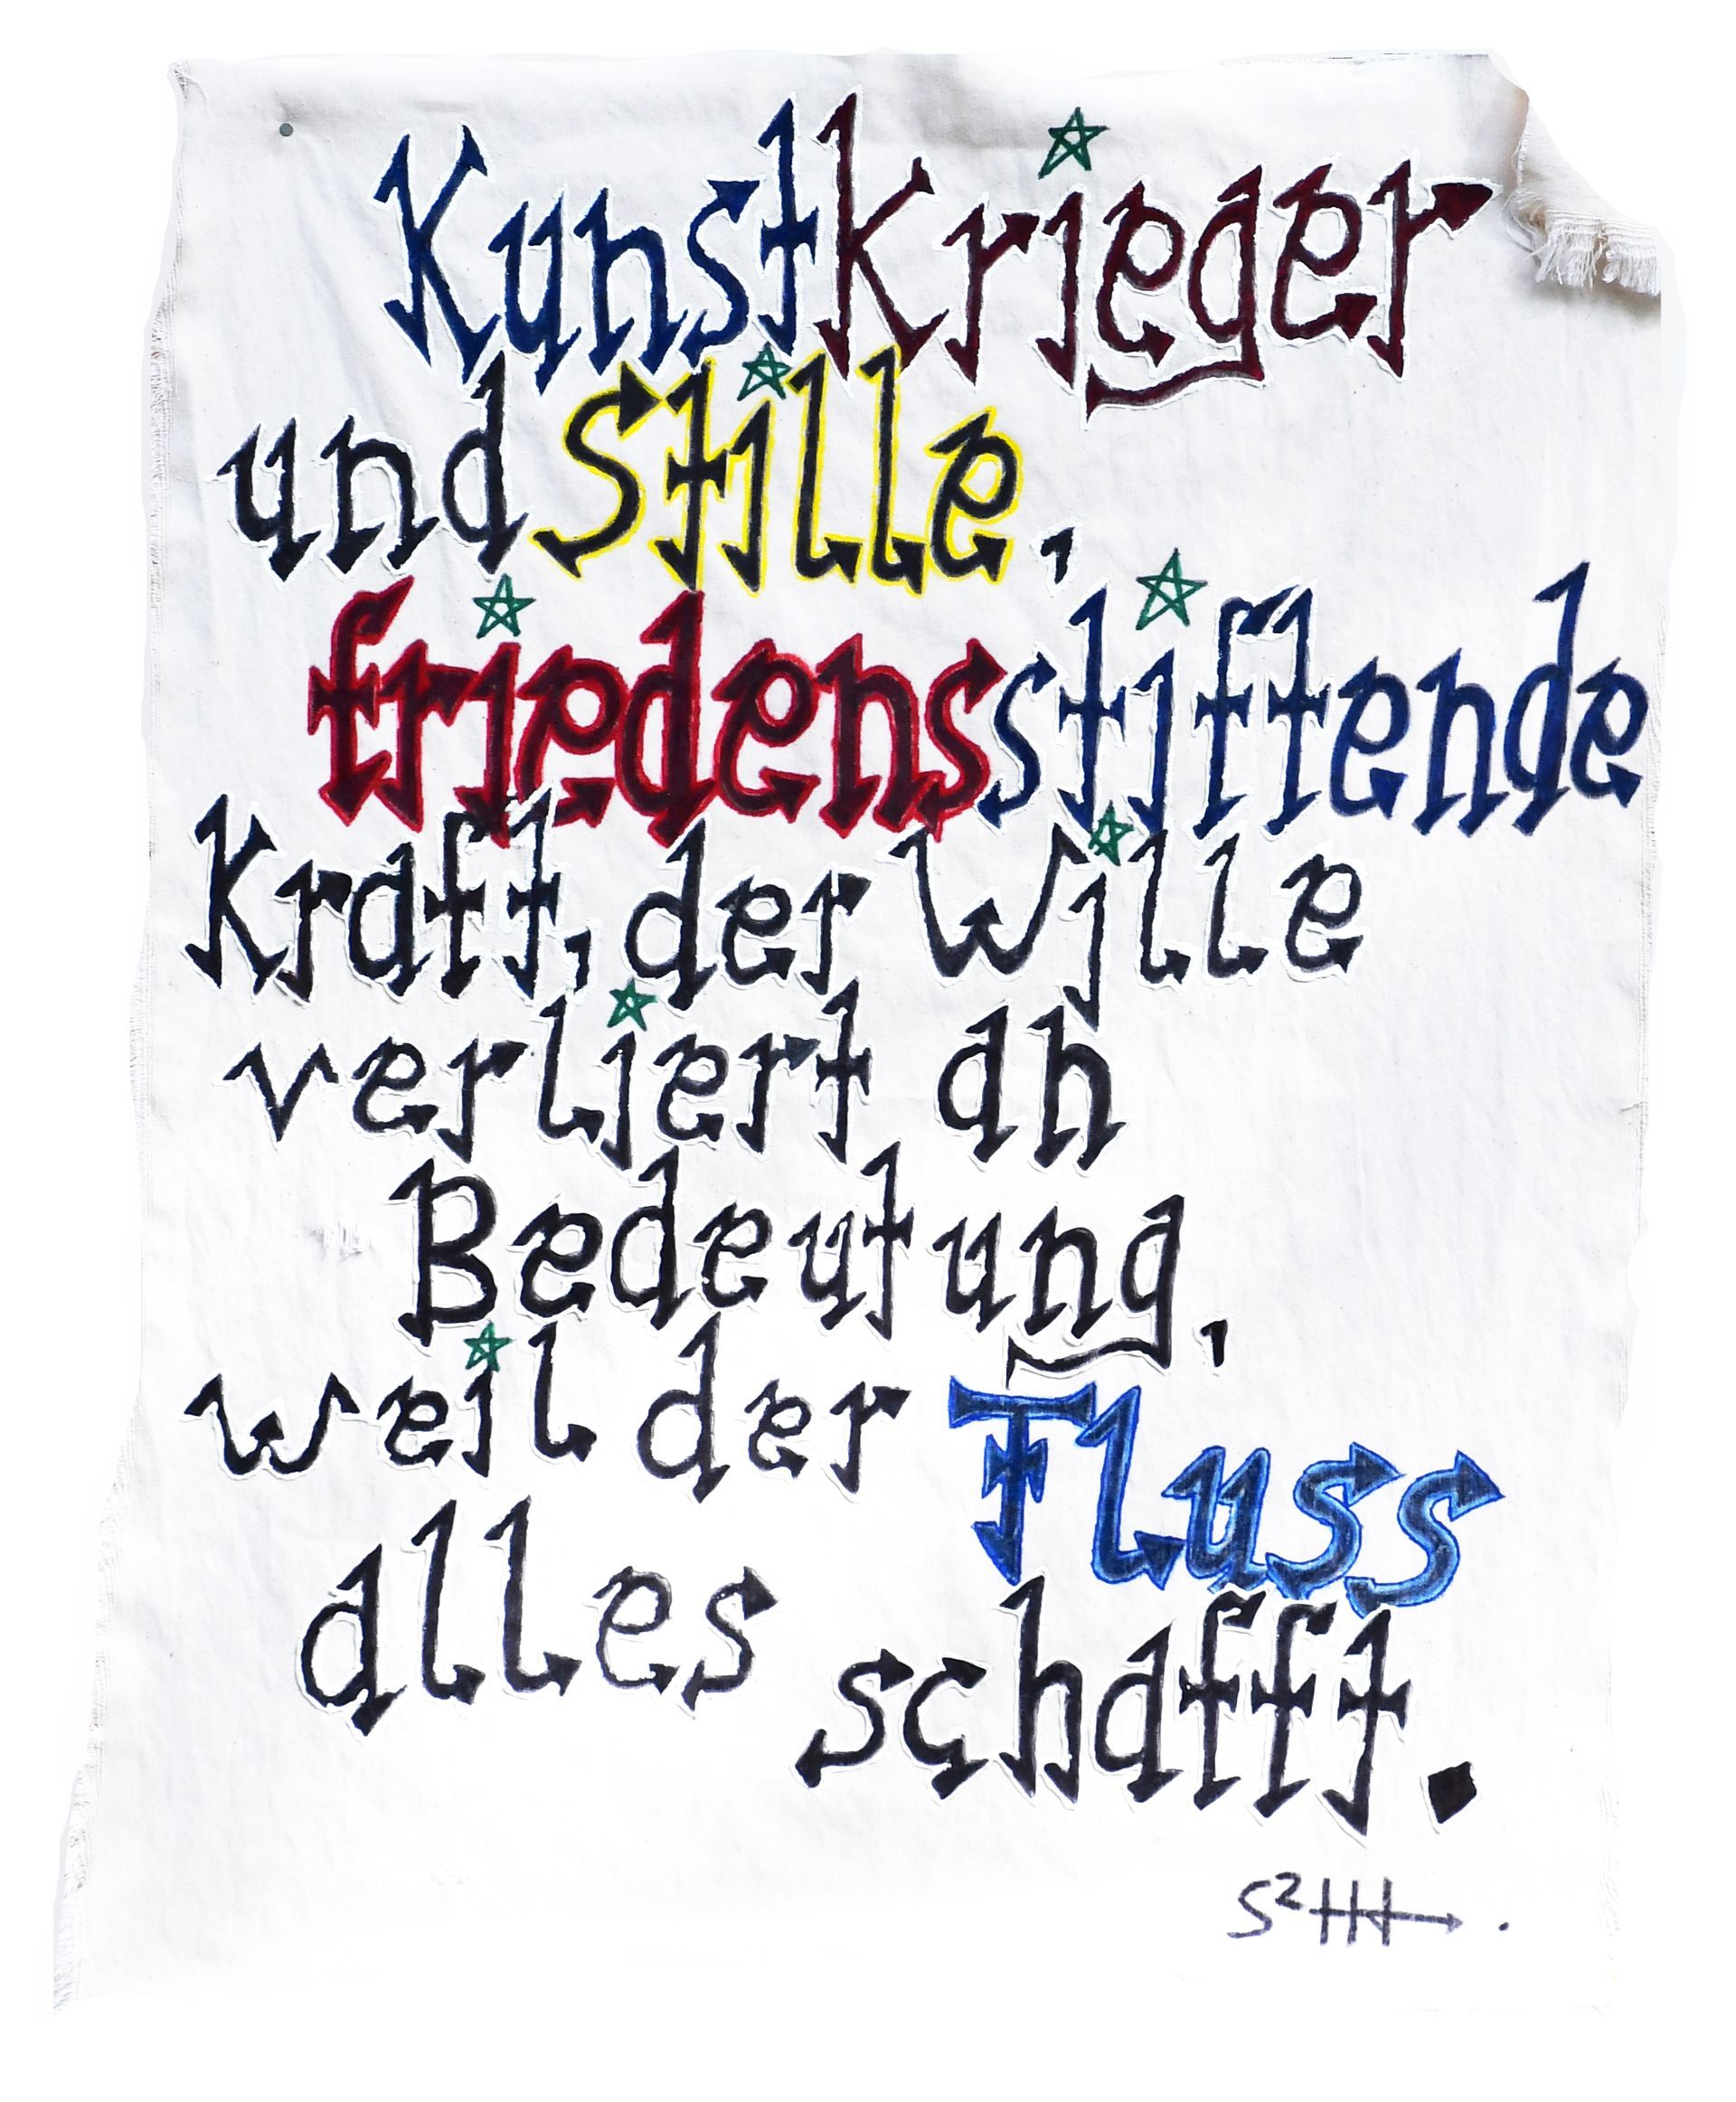 Kunstkrieger
und Stille,
friedensstiftende
Kraft, der Wille
verliert an
Bedeutung,
weil der Fluss
alles schafft.